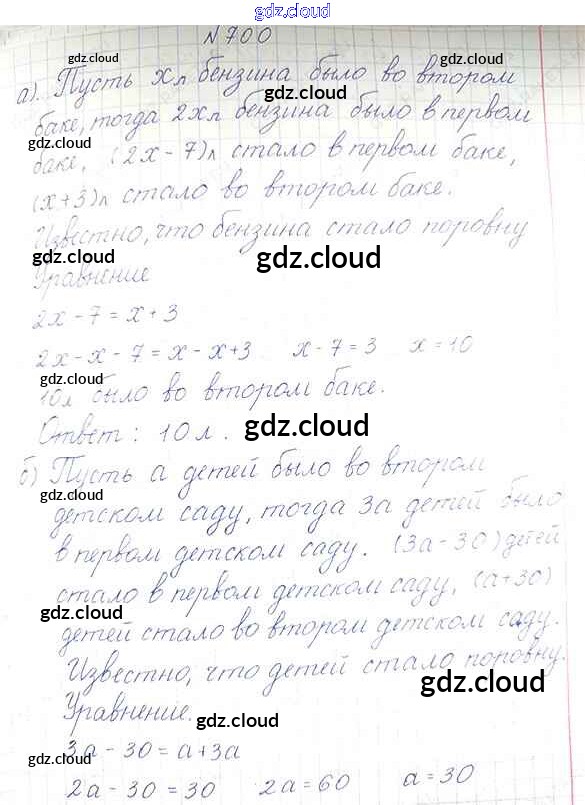 gdz.cloud
N 700
gdz.cloud gdz.cloud
а). Пусть хл бензина было во втором
gdz.cloud
баке, тогда 2хл бензина было в первом
gdz.cloud
баке, (2х - 7)л стало в первом баке,
(х+3)л стало во втором баке.
Известно, что бензина стало поровну
gdz.cloud gdz.cloud
Уравнение
2х - 7 = х + 3
2х - х - 7 = х - х + 3 х - 7 = 3 х = 10
gdz.cloud
10л было во втором баке.
Ответ: 10 л.
gdz.cloud
б) Пусть а детей было во втором
gdz.cloud
детском саду, тогда 3а детей было
в первом детском саду. (3а - 30) детей
gdz.cloud
стало в первом детском саду, (а+30)
gdz.cloud
детей стало во втором детском саду.
Известно, что детей стало поровну.
gdz.cloud
Уравнение.
gdz.cloud
3а - 30 = а + 3а
gdz.cloud
2а - 30 = 30 2а = 60 а = 30